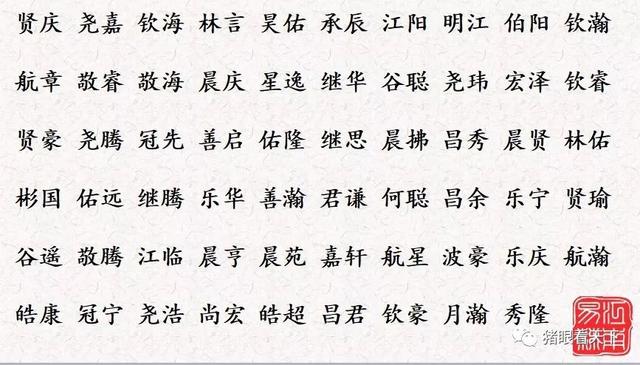 贤庆 尧嘉 钦海 林言 昊佑 承辰 江阳 明江 伯阳 钦瀚
航章 敬睿 敬海 晨庆 星逸 继华 谷聪 尧玮 宏泽 钦睿
贤豪 尧腾 冠先 善启 佑隆 继思 晨拂 昌秀 晨贤 林佑
彬国 佑远 继腾 乐华 善瀚 君谦 何聪 昌余 乐宁 贤瑜
谷遥 敬腾 江临 晨亨 晨苑 嘉轩 航星 波豪 乐庆 航瀚
皓康 冠宁 尧浩 尚宏 皓超 昌君 钦豪 月瀚 秀隆
猪眼看天下